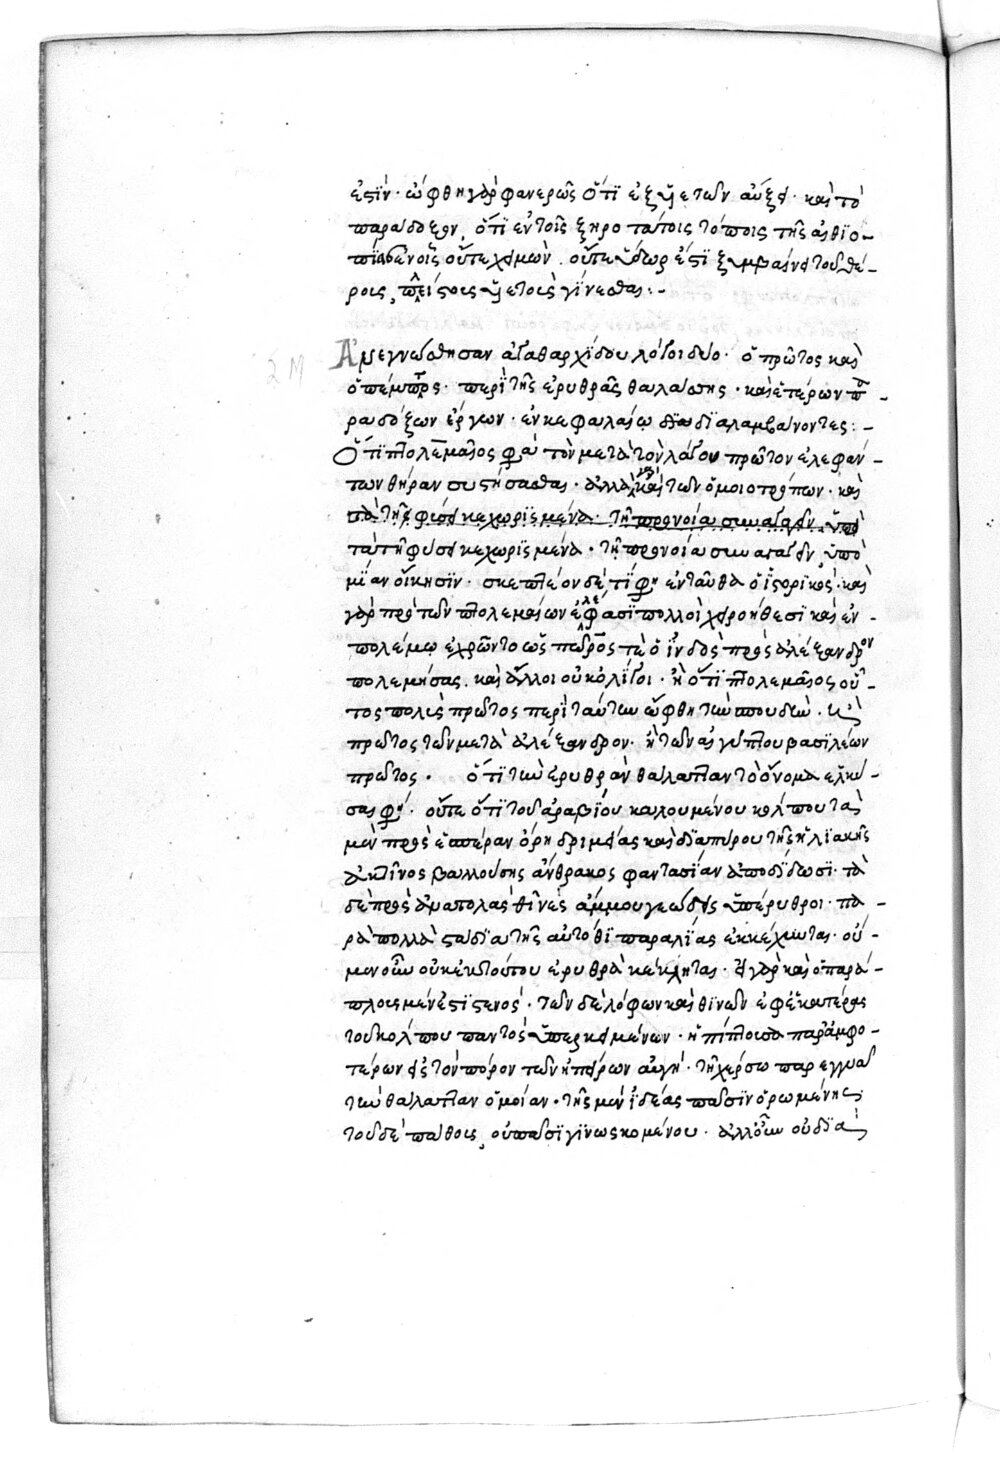 ἐστίν· ὤφθη γὰρ φανερῶς ὅτι ἐξ ὑετῶν αὔξει· καὶ τὸ
παράδοξον, ὅτι ἐν τοῖς ξηροτάτοις τόποις τῆς αἰθιο-
πίας ἐν οἷς οὔτε χειμὼν οὔτε ὕδωρ ἐστὶ ξυμβαίνει τοῦ θέ-
ρους πλείστους ὑετοὺς γίνεσθαι:-
Ἀνεγνώσθησαν ἀγαθαρχίδου λόγοι δύο· ὁ πρῶτος καὶ
ὁ πέμπτος· περὶ τῆς ἐρυθρᾶς θαλάσσης· καὶ ἑτέρων πα-
ραδόξων ἔργων· ἐν κεφαλαίῳ διαλαμβάνοντες:-
Ὅτι πτολεμαῖος φησὶ τὸν μετὰ τὸν λάγου πρῶτον ἐλεφάν-
των θήραν συστήσασθαι· ἀλλὰ καὶ τῶν ὁμοιοτρόπων· καὶ
τὰ τῇ φύσει κεχωρισμένα· τῇ προνοίᾳ συναγαγεῖν ὑπὸ
τὰ τῇ φύσει κεχωρισμένα· τῇ προνοίᾳ συναγαγεῖν ὑπὸ
μίαν οἴκησιν· σκεπτέον δὲ τί φη ἐνταῦθα ὁ ἱστορικός· καὶ
γὰρ πρὸ τῶν πτολεμαίων ἐλέφασι πολλοὶ χειροήθεσι καὶ ἐν
πολέμῳ ἐχρῶντο ὡς πῶρός τε ὁ ἰνδὸς πρὸς ἀλέξανδρον
πολεμήσας. καὶ ἄλλοι οὐκ ὀλίγοι· ἢ ὅτι πτολεμαῖος οὗ-
τος πολὺς πρῶτος περὶ ταύτην ὤφθη τὴν σπουδὴν· ἢ
πρῶτος τῶν μετὰ ἀλέξανδρον· ἢ τῶν αἰγύπτου βασιλέων
πρῶτος· ὅτι τὴν ἐρυθρὰν θάλατταν τὸ ὄνομα ἑλκύ-
σαι φησὶ· οὔτε ὅτι τοῦ ἀραβίου καλουμένου κόλπου τὰ
μὲν πρὸς ἑσπέραν ὄρη δριμείας καὶ διαπύρου τῆς ἡλιακῆς
ἀκτῖνος βαλλούσης ἄνθρακος φαντασίαν ἀποδίδωσι· τὰ
δὲ πρὸς ἀνατολὰς θῖνες ἄμμου γεώδεις ὑπέρυθροι· πα-
ρὰ πολλὰ στάδια τῆς αὐτόθι παραλίας ἐκκέχυνται· οὐ-
μενοῦν οὐκ ἐκ τούτου ἐρυθρὰ κέκληται· εἰ γὰρ καὶ ὁ παρά-
πλους μέν ἐστι στενός· τῶν δὲ λόφων καὶ θινῶν ἐφ' ἑκατέρας
τοῦ κόλπου παντὸς ὑπερκειμένων· ἡ πίπτουσα παρ' ἀμφο-
τέρων εἰς τὸν πόρον τῶν ἠπείρων αὐγή· τῇ χέρσῳ παρεγγυᾷ
τὴν θάλατταν ὁμοίαν· τῆς μὲν ἰδέας πᾶσιν ὁρωμένης
τοῦ δὲ πάθους, οὐ πᾶσι γινωσκομένου· ἀλλ' οὖν οὐ διὰ